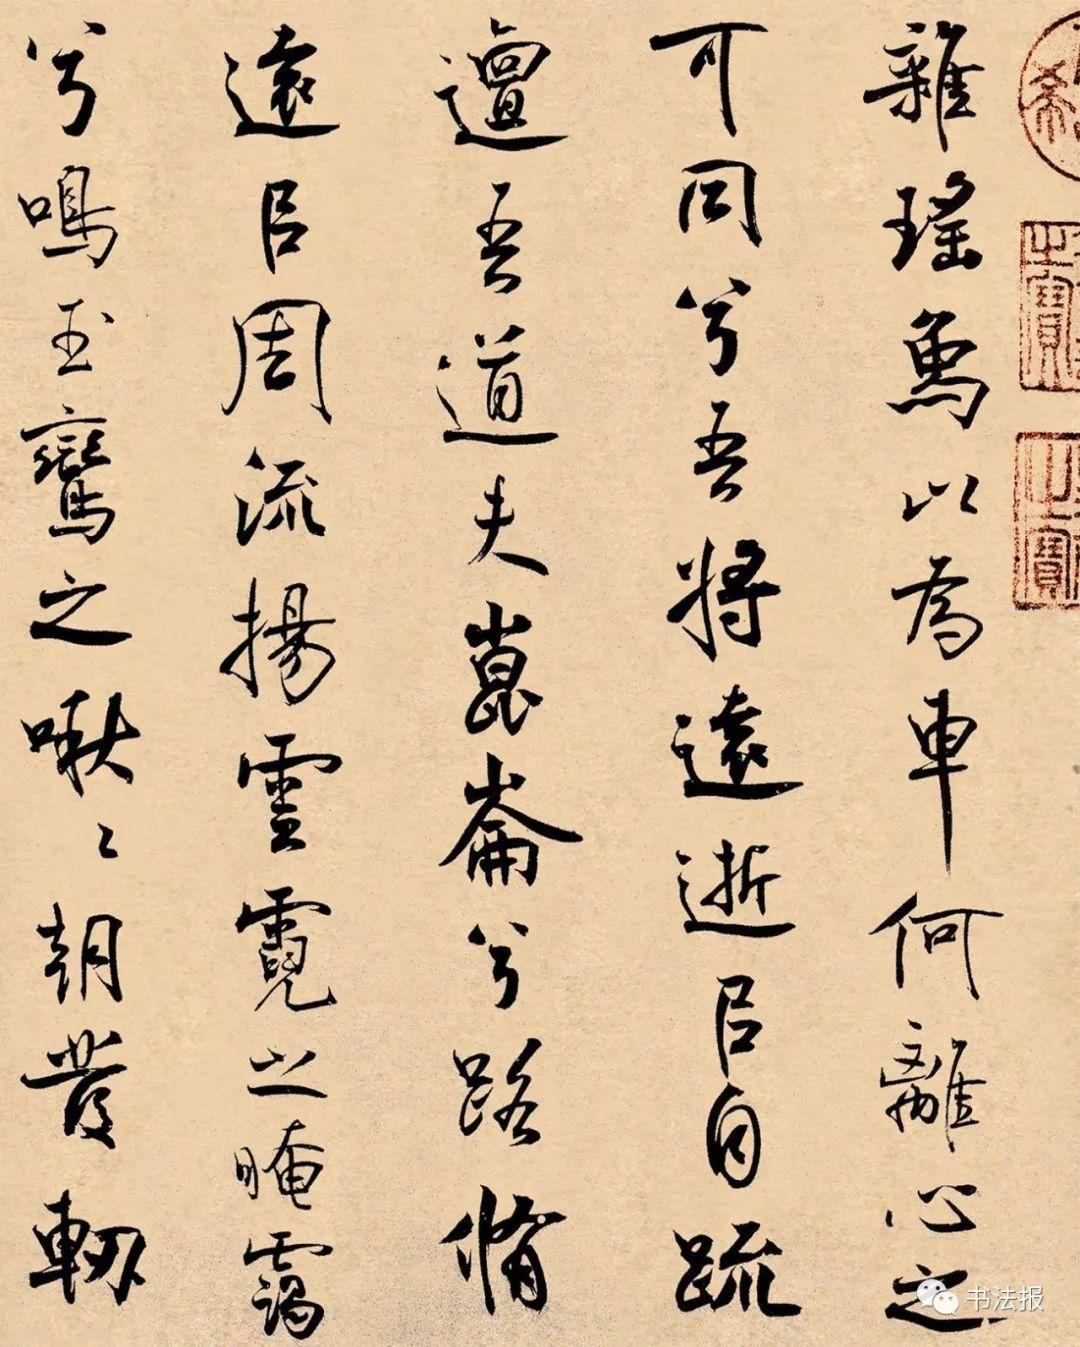 雜瑤象以為車何離心之
可同兮吾將遠逝㠯自疏
邅吾道夫崑崙兮路脩
遠㠯周流揚雲霓之晻靄
兮鳴玉鸞之啾々朝發軔
书法报